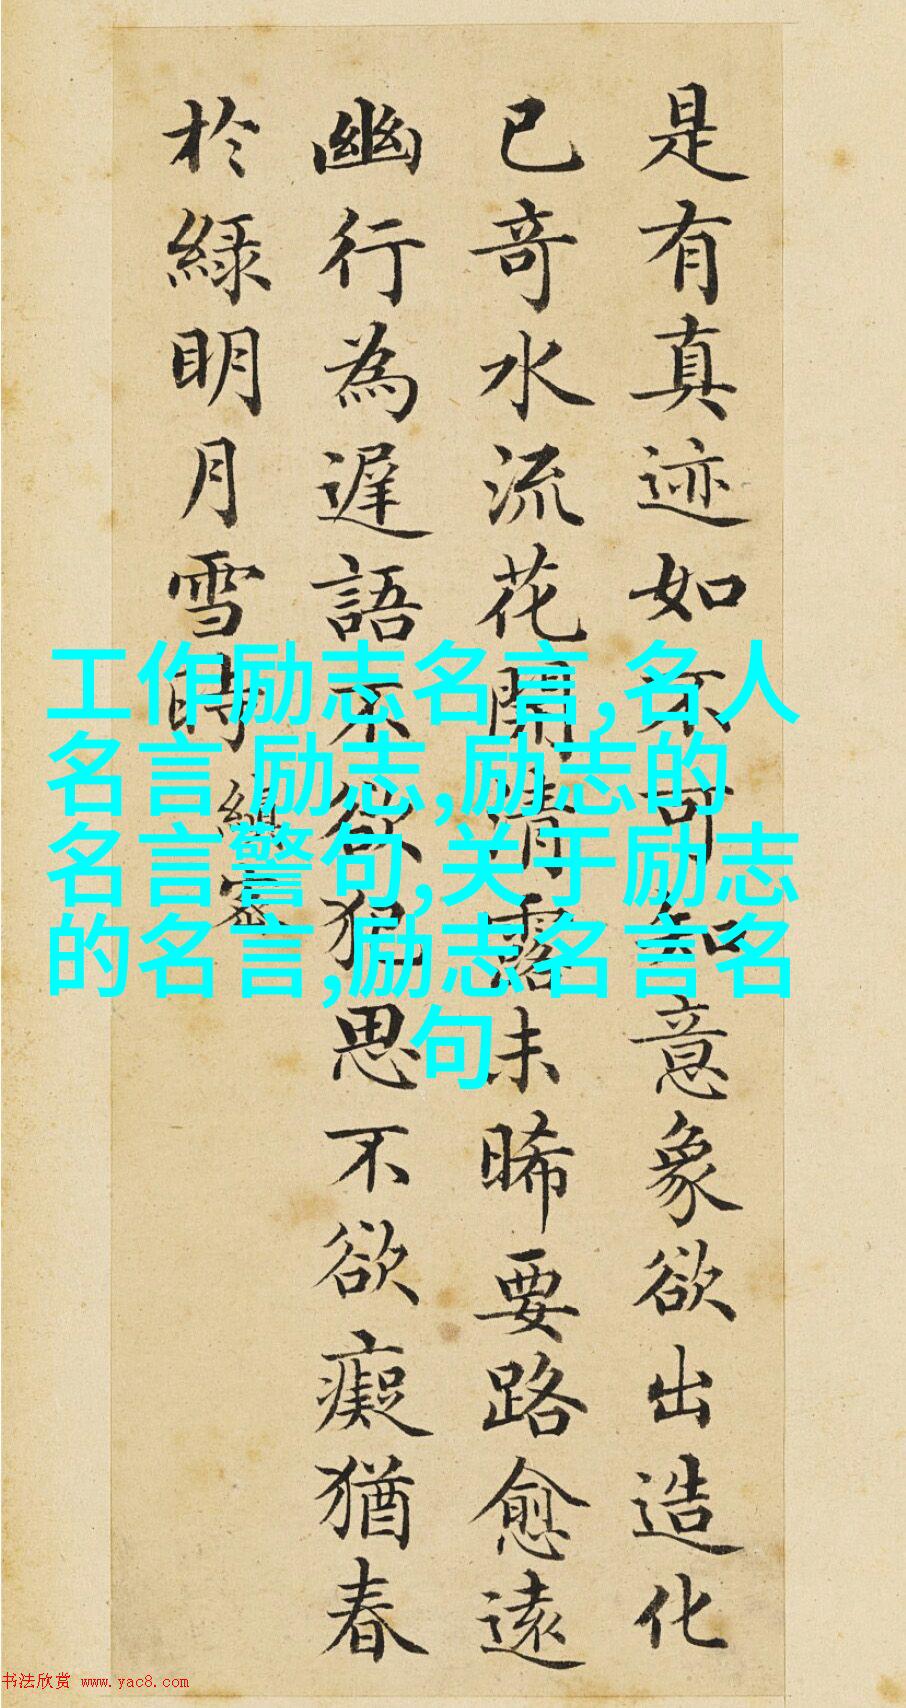 是有真迹如不可知意象欲出造化
已奇水流花開清露未晞要路愈遠
幽行為遲語不欲犯思不欲癡猶春
於綠明月雪時 縝密
工作励志名言,名人
名言 励志,励志的
名言警句,关于励志
的名言,励志名言名
句
书法欣赏 www.yac8.com